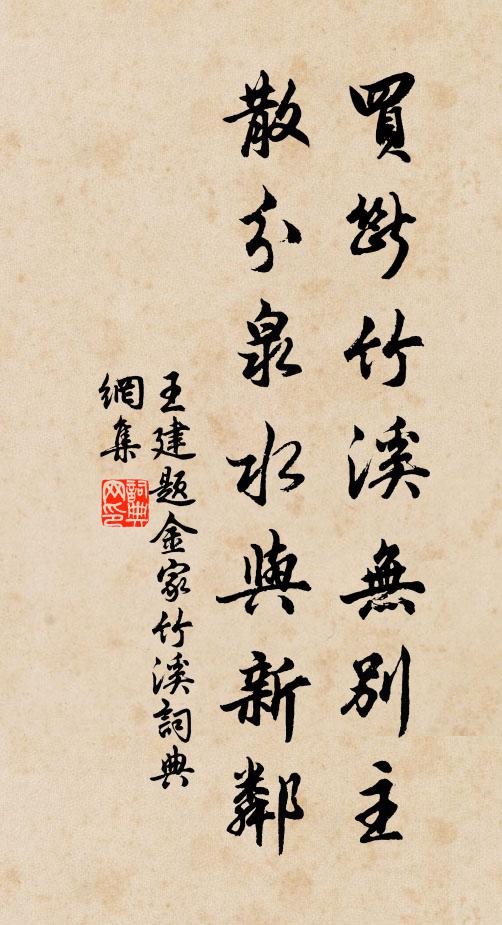 買斷竹溪無別主
散分泉水與新鄰
王建題金家竹溪詞典
網集
詞典
网印